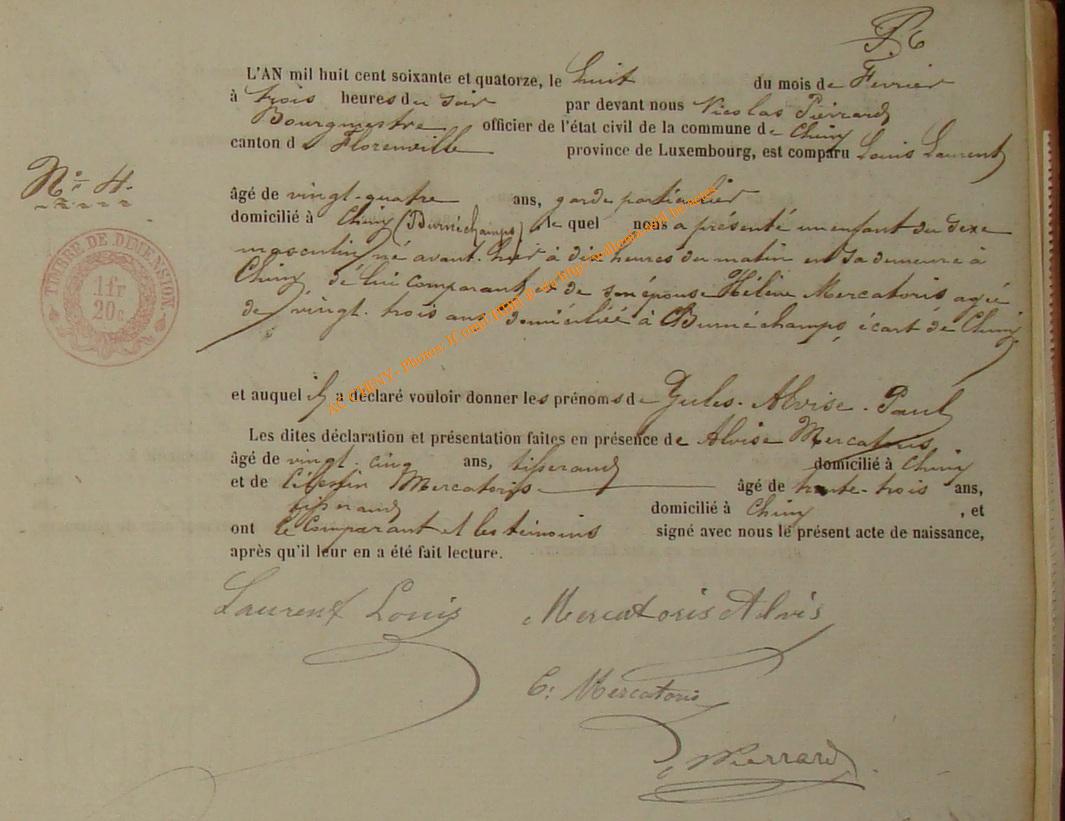 L'AN mil huit cent soixante et quatorze, le huit du mois de Fevrier
à trois heures du soir par devant nous Nicolas Pierrard
Bourgmestre officier de l'état civil de la commune de Chiny
canton de Florenville province de Luxembourg, est comparu Louis Laurent
N° 4.
âgé de vingt-quatre ans, garde particulier
domicilié à Chiny (Burnéchamps) le quel nous a présenté un enfant du sexe
masculin né avant-hier à dix heures du matin en sa demeure à
Chiny de lui comparant et de son épouse Hélène Mercatoris agée
de vingt-trois ans, domiciliée à Burnéchamps, écart de Chiny
TIMBRE DE DIMENSION.
1 fr
20 c.
et auquel il a déclaré vouloir donner les prénoms de Jules-Alvise-Paul
Les dites déclaration et présentation faites en présence de Alvise Mercatoris,
âgé de vingt-cinq ans, tisserand domicilié à Chiny
et de Célestin Mercatoris âgé de trente-trois ans,
tisserand domicilié à Chiny, et
ont le comparant et les témoins signé avec nous le présent acte de naissance,
après qu'il leur en a été fait lecture.
Laurent Louis Mercatoris Alvis
C: Mercatoris
Pierrard
AC CHINY - Photos